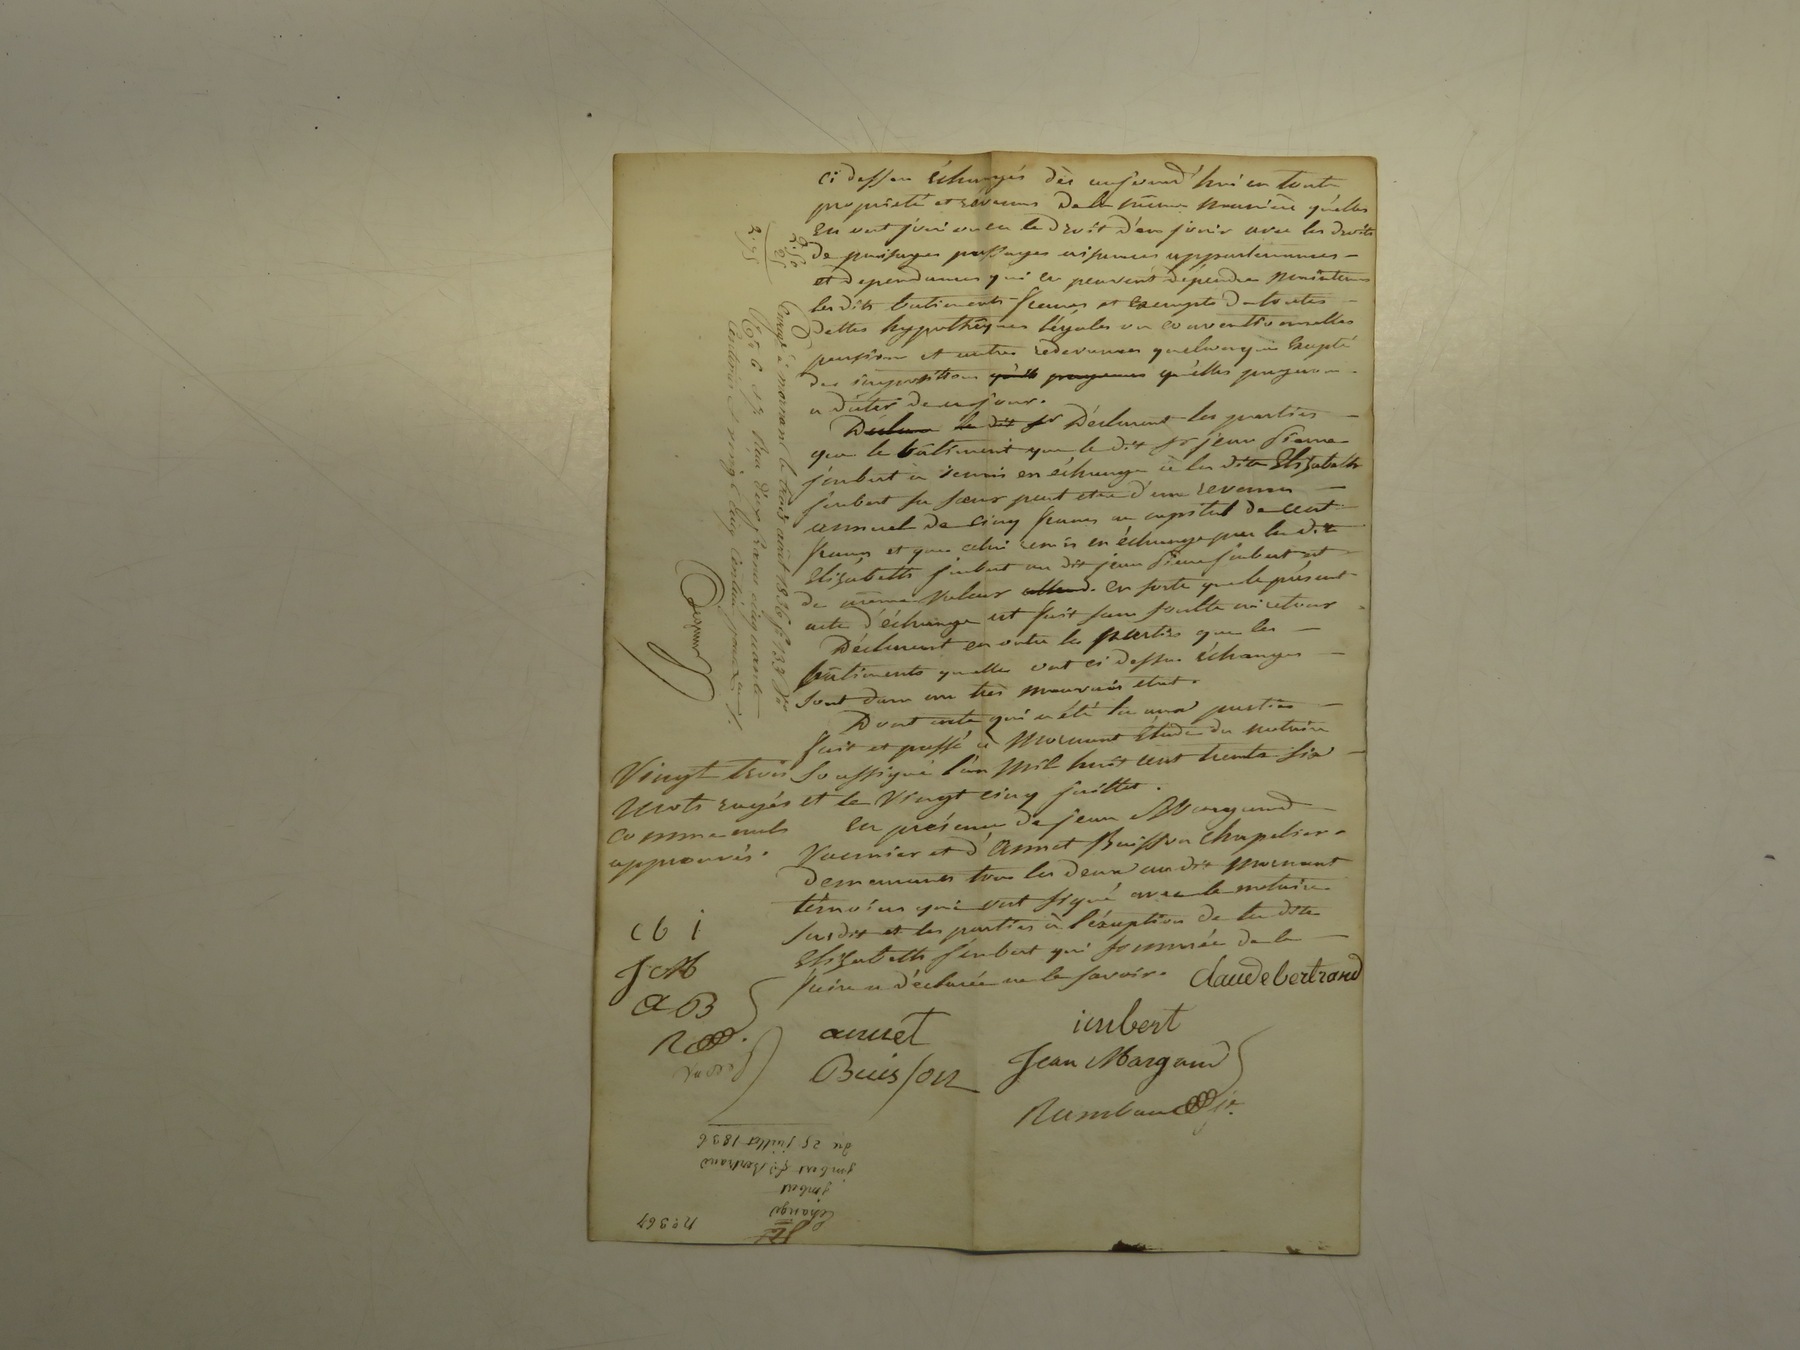 ci dessus échangés dès aujourd'hui en toute
propriété et revenus de la même manière qu'elles
en ont joui ou eu le droit d'en jouir avec les droits
de puisages passages aisances appartenances -
et dépendances qui en peuvent dépendre maintenu
les dits batiments francs et exempts de toutes -
dettes hypothèques légales ou conventionnelles
pensions et autres redevances quelconques excepté
des impositions qu'elles payeront -
a dater de ce jour.
Déclarent les parties -
que le bâtiment que le dit sr jean Pierre
jmbert a remis en échange à la dite Elizabeth
jmbert sa sœur peut etre d'un revenu -
annuel de cinq francs au capital de cent
francs et que celui remis en échange par la dite
Elizabeth jmbert au dit jean Pierre jmbert est
de même valeur en sorte que le présent
acte d'échange est fait sans soulte ni retour
Déclarent en outre les parties que les -
bâtiments qu'elles ont ci dessus échangés -
sont dans un très mauvais état.
Dont acte qui a été lu aux parties -
fait et passé à Mornant étude du notaire
soussigné l'an mil huit cent trente six -
et le vingt cinq juillet.
en présence de jean Margand -
et d'Annet Buisson chapelier -
demeurants tous les deux au dit Mornant
témoins qui ont signé avec le notaire
susdit et les parties à l'exception de la dite
Elizabeth jmbert qui sommée de le -
faire a déclarée ne le savoir.
claude bertrand
imbert
annet
Buisson
Jean Margand
Rambaud
Vingt trois
mots rayés
comme nuls
approuvés.
c b i
J M
a B
R
2.50
25
2.75
Enregé à mornant le trois août 1836 f° 133 Vo
Co 6 Reçu deux francs cinquante
centimes et vingt cinq centimes pour
n° 367
Echange
jmbert
jmbert fe Bertrand
du 25 juillet 1836